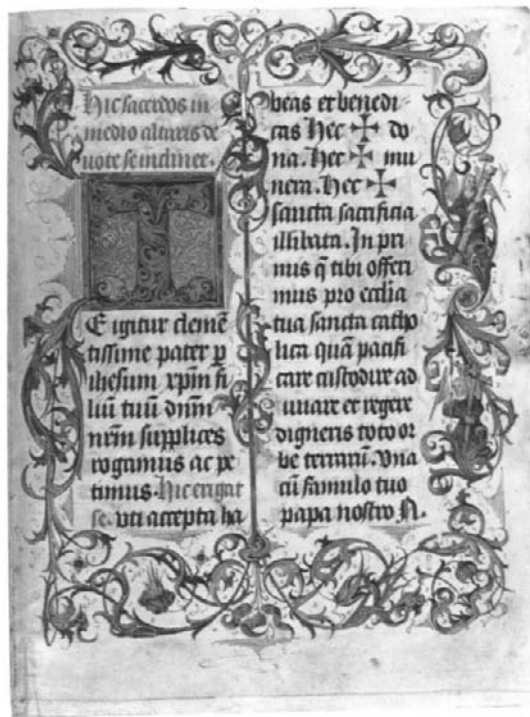 Hic sacerdos in
medio altaris de
uote se inclinet.
T
E igitur clemē
tissime pater p
ihesum xpm̄ fi
liū tuū dnm̄
nrm̄ supplices
rogamus ac pe
timus. Hic erigat
se. vti accepta ha
beas et benedi
cas Hec ✠ do
na. Hec ✠ mu
nera. Hec ✠
sancta sacrificia
illibata. In pri
mus q̄ tibi offeri
mus pro ecclia
tua sancta catho
lica quā pacifi
care custodire ad
iuuare et regere
digneris toto or
be terrarū. Vna
cū famulo tuo
papa nostro N.